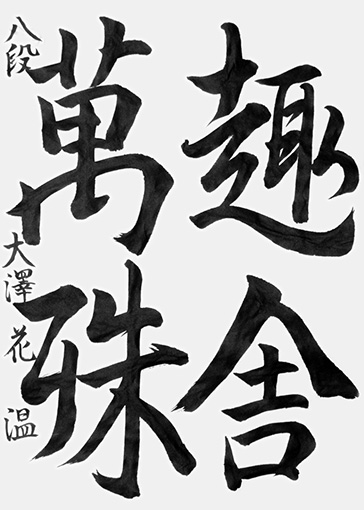 趣舎
萬殊
八段 大澤花温